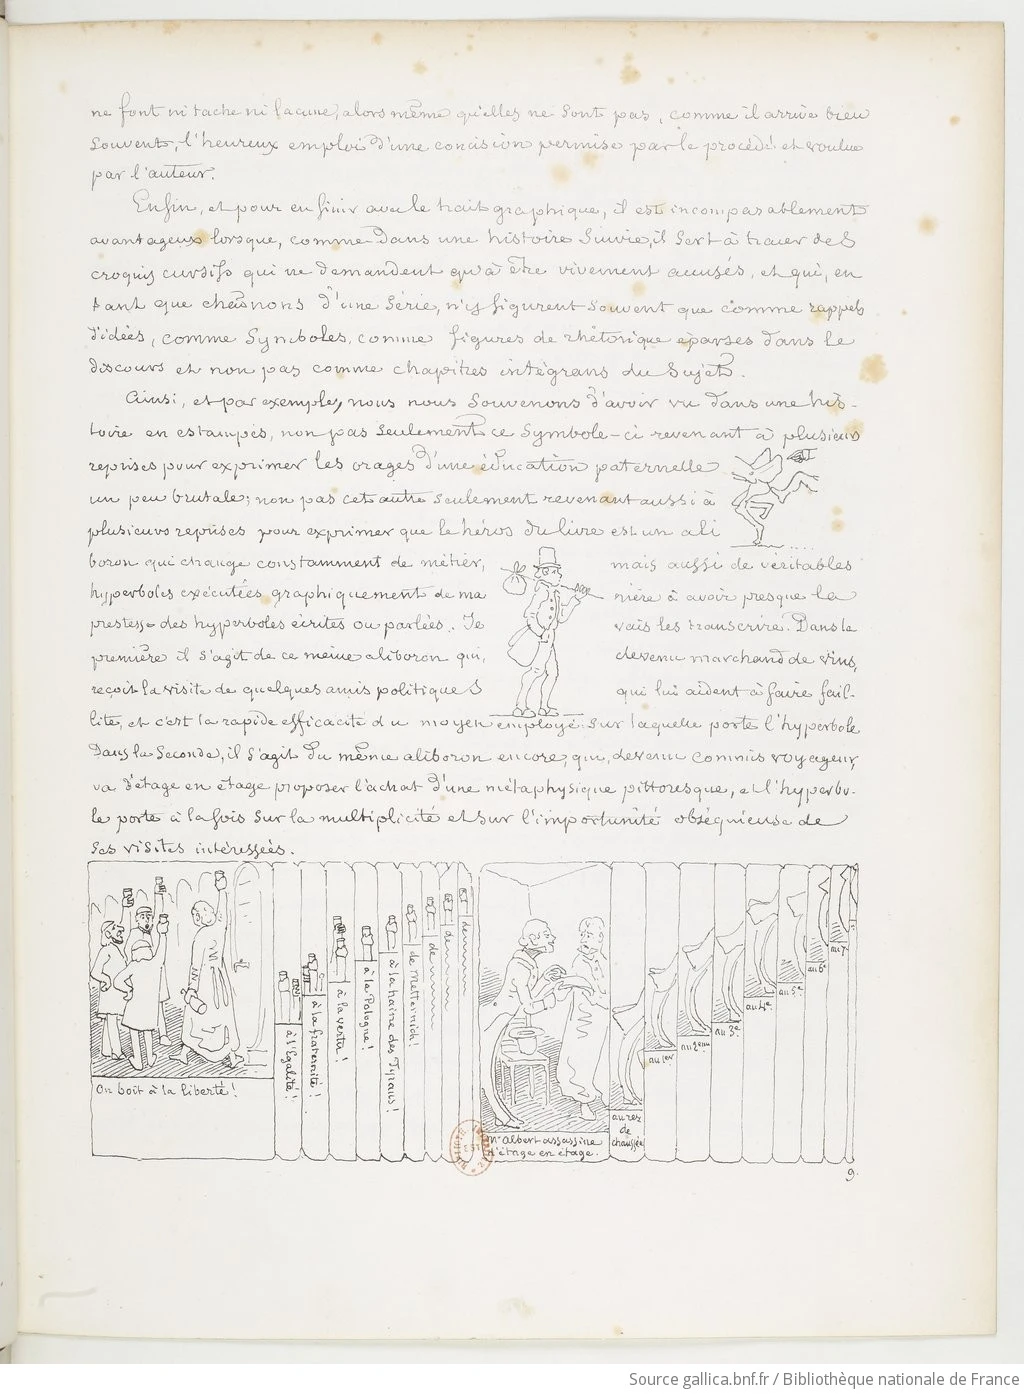 ne font ni tache ni lacune, alors même qu'elles ne sont pas, comme il arrive bien
souvent, l'heureux emploi d'une concision permise par le procédé et voulue
par l'auteur.
Enfin, et pour en finir avec le trait graphique, il est incomparablement
avantageux lorsque, comme dans une histoire suivie, il sert à tracer des
croquis cursifs qui ne demandent qu'à être vivement accusés, et qui, en
tant que chaînons d'une série, n'y figurent souvent que comme rappels
d'idées, comme symboles, comme figures de rhétorique éparses dans le
discours et non pas comme chapitres intégrans du sujet.
Ainsi, et par exemple, nous nous souvenons d'avoir vu dans une his-
toire en estampes, non pas seulement ce symbole-ci revenant à plusieurs
reprises pour exprimer les orages d'une éducation paternelle
un peu brutale; non pas cet autre seulement revenant aussi à
plusieurs reprises pour exprimer que le héros du livre est un ali
boron qui change constamment de métier, mais aussi de véritables
hyperboles exécutées graphiquement de ma nière à avoir presque la
prestesse des hyperboles écrites ou parlées. Je vais les transcrire. Dans la
première il s'agit de ce même aliboron qui, devenu marchand de vins,
reçoit la visite de quelques amis politiques qui lui aident à faire fail-
lite, et c'est la rapide efficacité du moyen employé sur laquelle porte l'hyperbole
Dans la seconde, il s'agit du même aliboron encore, qui, devenu commis voyageur,
va d'étage en étage proposer l'achat d'une métaphysique pittoresque, et l'hyperbo-
le porte à la fois sur la multiplicité et sur l'importunité obséquieuse de
ses visites intéressées.
On boit à la liberté!
à l'Egalité!
à la fraternité!
à la vertu!
à la Pologne!
à la haine des Tyrans!
de Metternich!
de
de
de
Mr Albert assassine
d'étage en étage.
au rez
de
chaussée
au 1er
au 2eme
au 3e
au 4e
au 5e
au 6e
au 7e
9.
Source gallica.bnf.fr / Bibliothèque nationale de France